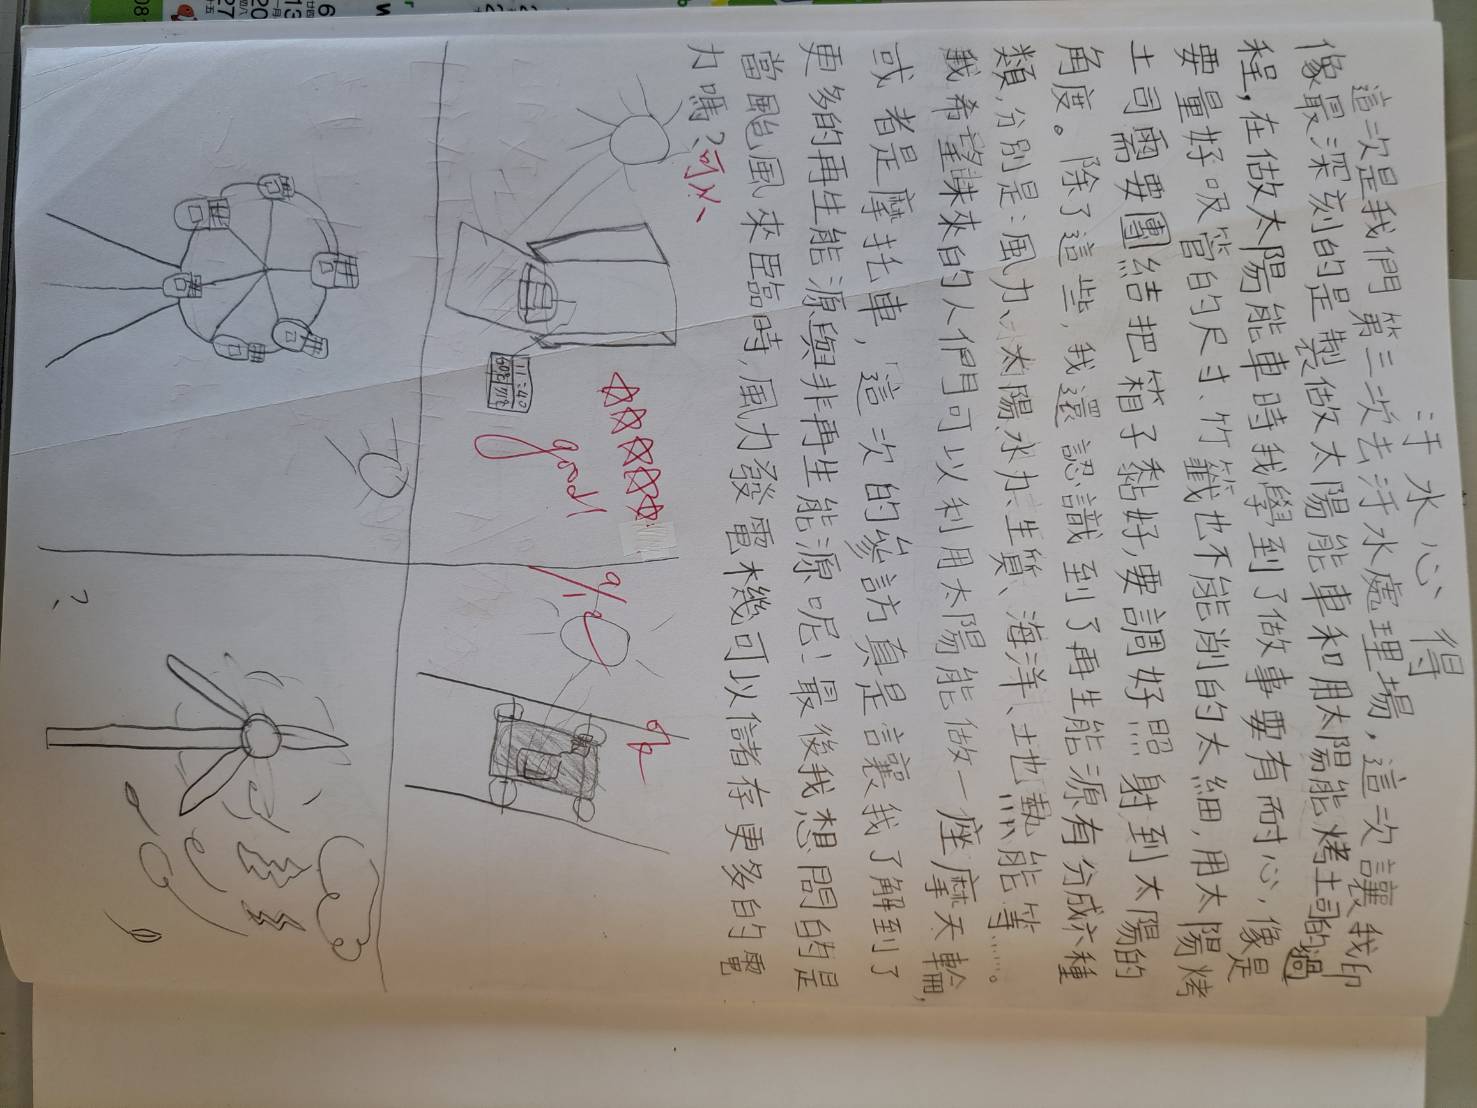 汙水心得
這次是我們第三次去汙水處理場，這次讓我印
像最深刻的是製做太陽能車和用太陽能烤土司的過
程，在做太陽能車時我學到了做事要有耐心，像是
要量好吸管的尺寸、竹籤也不能削的太細，用太陽烤
土司需要團結把箱子黏好，要調好照射到太陽的
角度。除了這些，我還認識到了再生能源有分成六種
類，分別是：風力、太陽、水力、生質、海洋、土地熱能等……。
我希望味來的人們可以利用太陽能做一座摩天輪，
或者是摩托車，這次的參訪真是讓我了解到了
更多的再生能源與非再生能源呢！最後我想問的是
當颱風來臨時，風力發電機可以儲存更多的電
力嗎？可以、
11:40
good
9/2
？